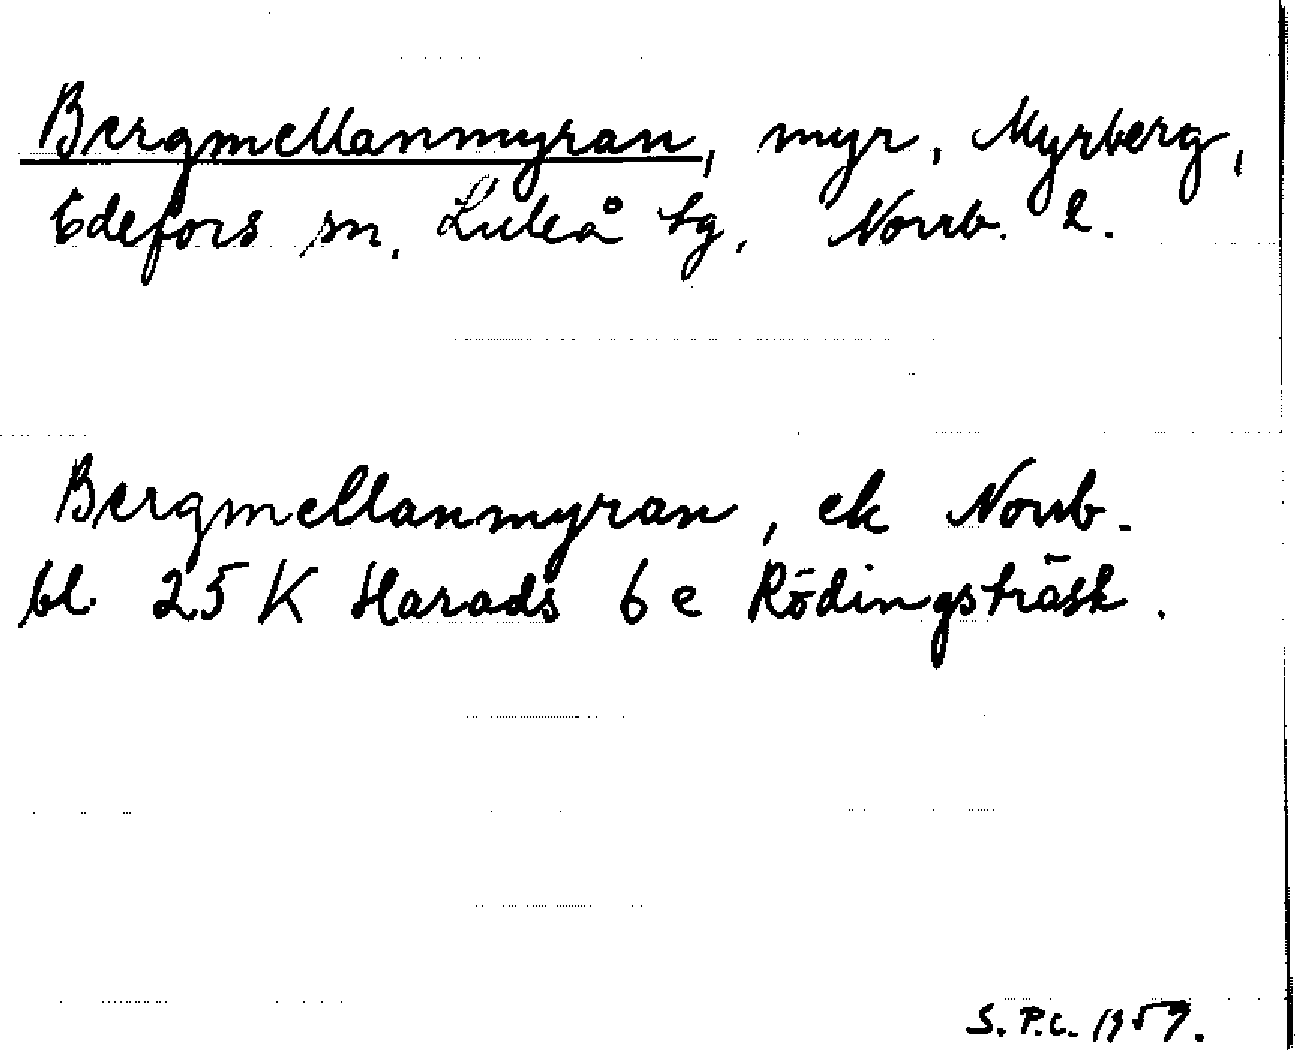 Bergmellanmyran, myr, Myrberg,
Edefors sn. Luleå tg. Norrb. l.
Bergmellanmyran, ek Norrb.
bl 25 K Harads 6 e Rödingsträsk.
S. P.C. 1959.